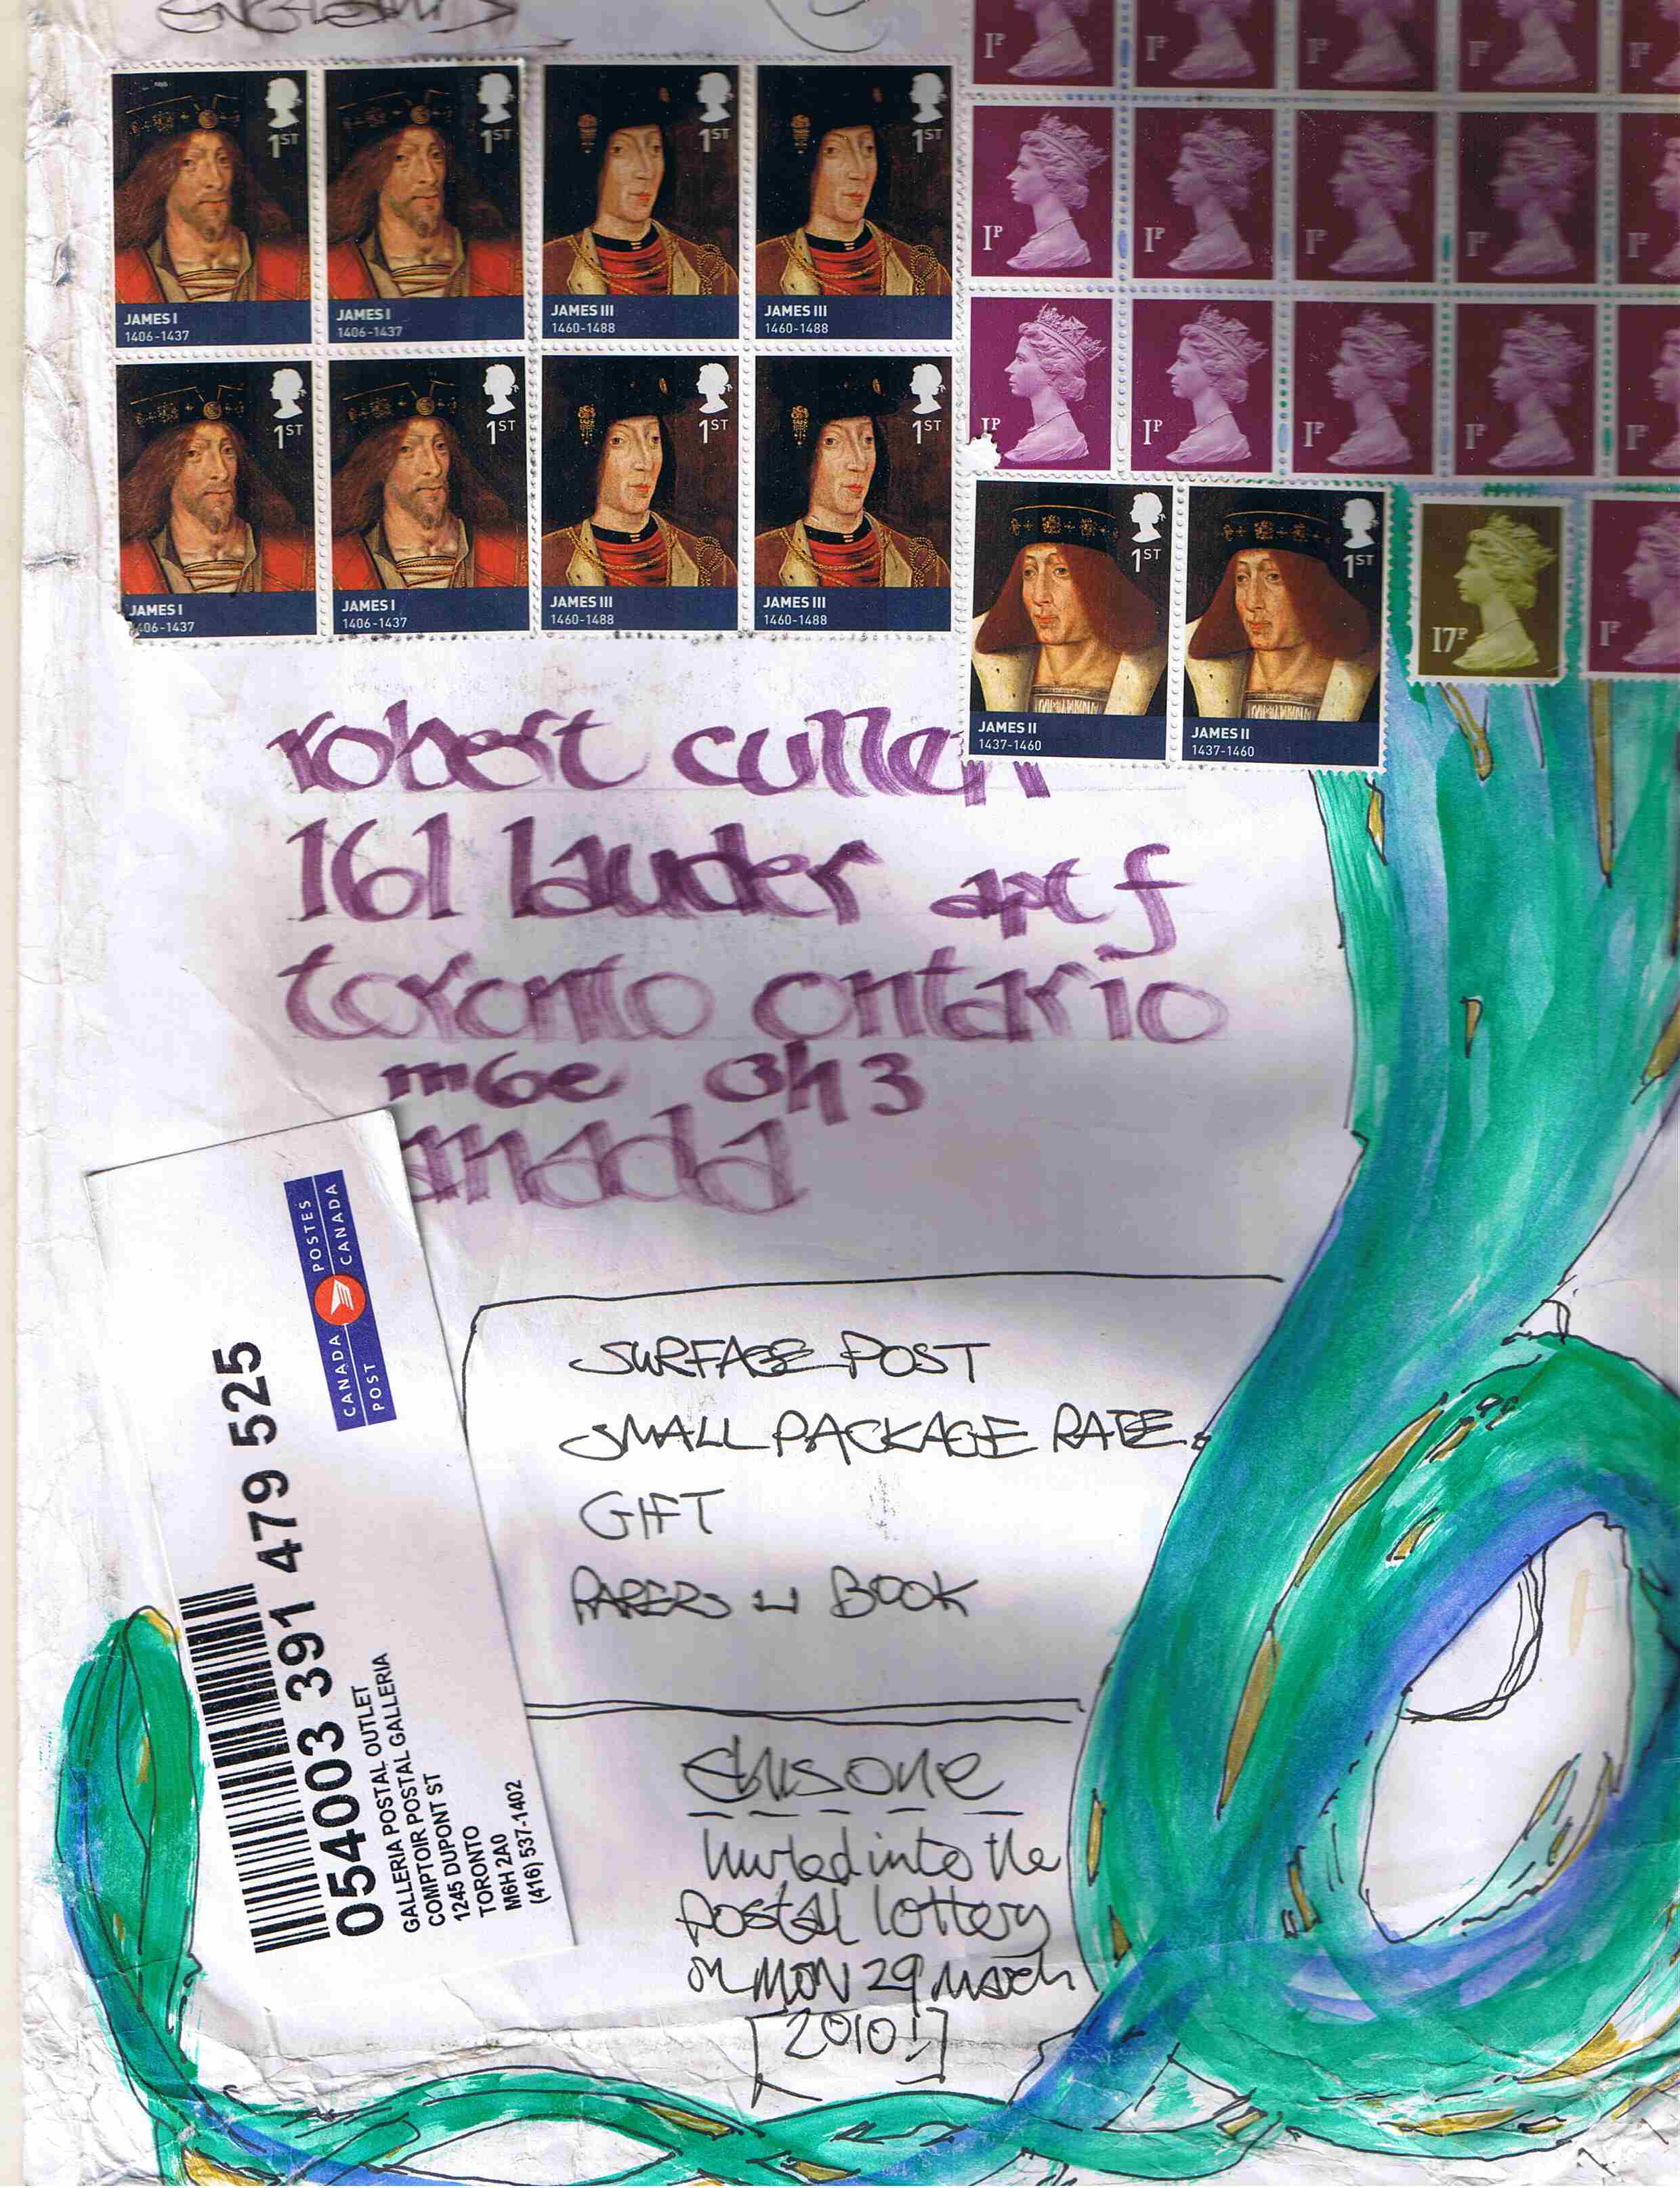 ENGLAND
1P 1P 1P 1P 1P
1ST 1ST 1ST 1ST
JAMES I JAMES I JAMES III JAMES III
1406-1437 1406-1437 1460-1488 1460-1488
1P 1P 1P 1P 1P
1ST 1ST 1ST 1ST
JAMES I JAMES I JAMES III JAMES III
1406-1437 1406-1437 1460-1488 1460-1488
1P 1P 1P 1P 1P
1ST 1ST
JAMES II JAMES II
1437-1460 1437-1460
17P 1P
robert cullen
161 lauder apt f
toronto ontario
m6e 3h3
anada
CANADA POSTES
POST CANADA
054003 391 479 525
GALLERIA POSTAL OUTLET
COMPTOIR POSTAL GALLERIA
1245 DUPONT ST
TORONTO
M6H 2A0
(416) 537-1402
SURFACE POST
SMALL PACKAGE RATE.
GIFT
PAPERS BOOK
this one
hurled into the
postal lottery
on MON 29 march
[2010!]